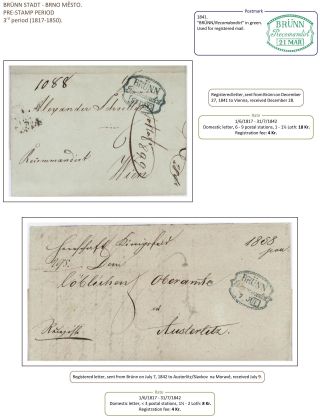 BRÜNN STADT - BRNO MĚSTO.
PRE-STAMP PERIOD
3rd period (1817-1850).
Postmark
1841.
"BRÜNN/Recomandirt" in green.
Used for registered mail.
BRÜNN
Recomandirt
21 MAR
1088
Alexander
Recommandirt
Wien
Registered letter, sent from Brünn on December
27, 1841 to Vienna, received December 28.
Rate
1/6/1817 - 31/7/1842
Domestic letter, 6 - 9 postal stations, 1 - 1½ Loth: 18 Kr.
Registration fee: 4 Kr.
Herrschaft Königsfeld
1888
Dem
löblichen Oberamte
BRÜNN
7 JUL
in
Austerlitz
Registered letter, sent from Brünn on July 7, 1842 to Austerlitz/Slavkov na Moravě, received July 9.
Rate
1/6/1817 - 31/7/1842
Domestic letter, < 3 postal stations, 1½ - 2 Loth: 8 Kr.
Registration fee: 4 Kr.